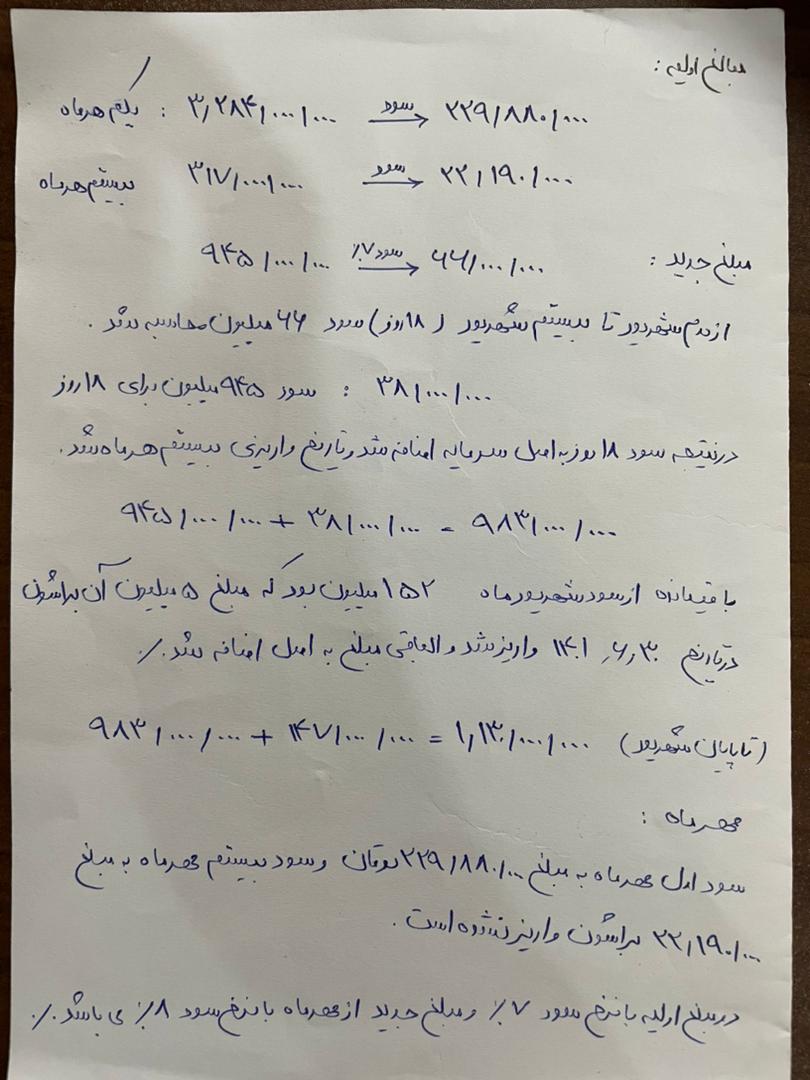 مبالغ اولیه :
یکم هر ماه : ۳,۲۸۴/۰۰۰/۰۰۰ سود → ۲۲۹/۸۸۰/۰۰۰
بیستم هر ماه ۳۱۷/۰۰۰/۰۰۰ سود → ۲۲,۱۹۰/۰۰۰
مبلغ جدید : ۹۴۵/۰۰۰/۰۰۰ سود ۷٪ → ۶۶/۰۰۰/۰۰۰
از دوم شهریور تا بیستم شهریور (۱۸ روز) سود ۶۶ میلیون محاسبه شد .
۳۸/۰۰۰/۰۰۰ : سود ۹۴۵ میلیون برای ۱۸ روز
در نتیجه سود ۱۸ روز به اصل سرمایه اضافه شد و تاریخ واریزی بیستم هر ماه شد .
۹۴۵/۰۰۰/۰۰۰ + ۳۸/۰۰۰/۰۰۰ = ۹۸۳/۰۰۰/۰۰۰
باقیمانده از سود شهریور ماه ۱۵۲ میلیون بود که مبلغ ۵ میلیون آن براشون
در تاریخ ۱۴۰۱,۶,۳۰ واریز شد و الباقی مبلغ به اصل اضافه شد ./.
(تا پایان شهریور) ۹۸۳/۰۰۰/۰۰۰ + ۱۴۷/۰۰۰/۰۰۰ = ۱,۱۳۰/۰۰۰/۰۰۰
مهر ماه :
سود اول مهر ماه به مبلغ ۲۲۹/۸۸۰/۰۰۰ تومان و سود بیستم مهر ماه به مبلغ
۲۲,۱۹۰/۰۰۰ براشون واریز نشده است .
در مبلغ اولیه با نرخ سود ۷٪ و مبلغ جدید از مهر ماه با نرخ سود ۸٪ می باشد ./.